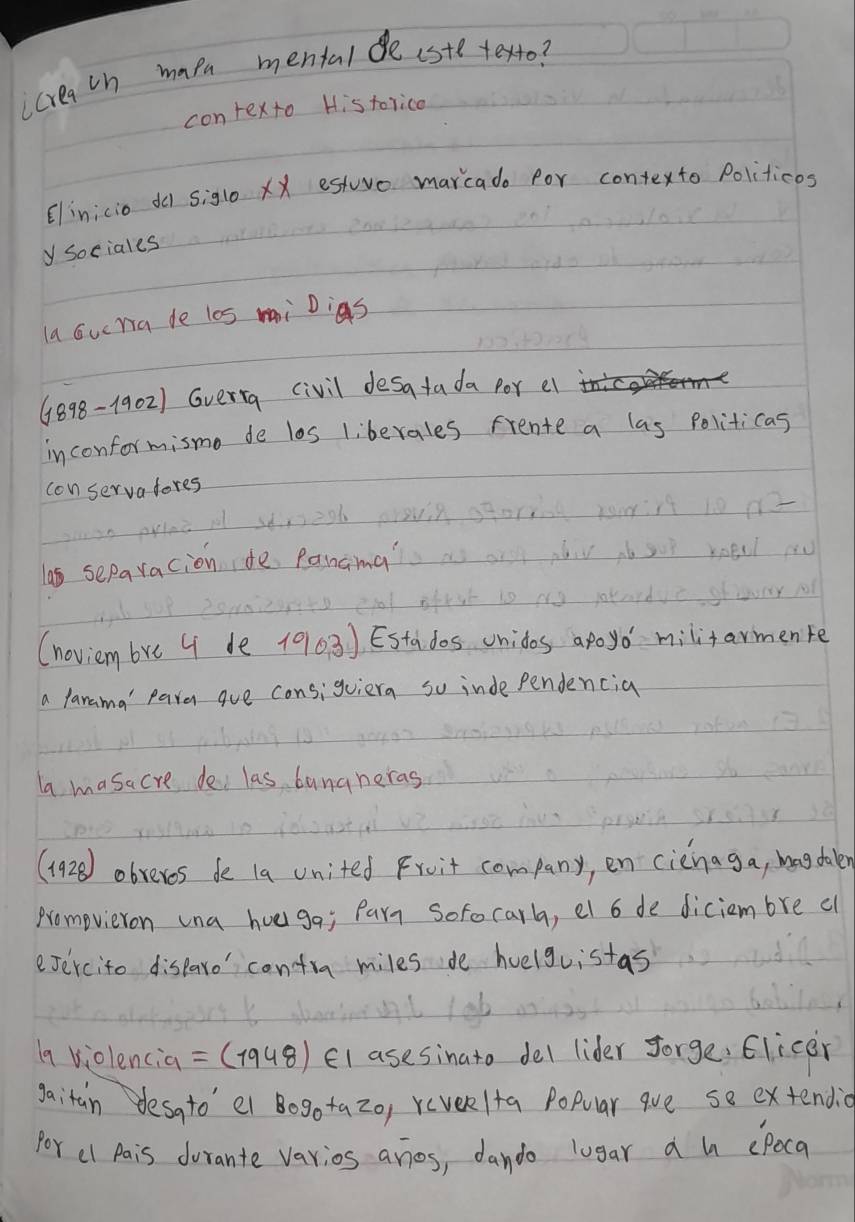 ¡Crea un mapa mental de este texto?
contexto Historico
El inicio del siglo XX estuvo marcado por contexto Politicos
y sociales
la Guerra de los mi Dias
(1898-1902) Guerra civil desatada por el
inconformismo de los liberales frente a las Politicas
conservadores
las separación de Panamá
(noviembre 4 de 1903) Estados unidos apoyó militarmente
a Panamá para que consiguiera su independencia
la masacre de las bananeras
(1928) obreros de la united Fruit company, en ciénaga, magdalen
promovieron una huelga; Para sofocarla, el 6 de diciembre el
ejército disparó contra miles de huelguistas
la violencia = (1948) El asesinato del lider Jorge Elicér
gaitán desató el Bogotazo, revuelta Popular que se extendio
Por el País durante varios años, dando lugar a la época
Norma